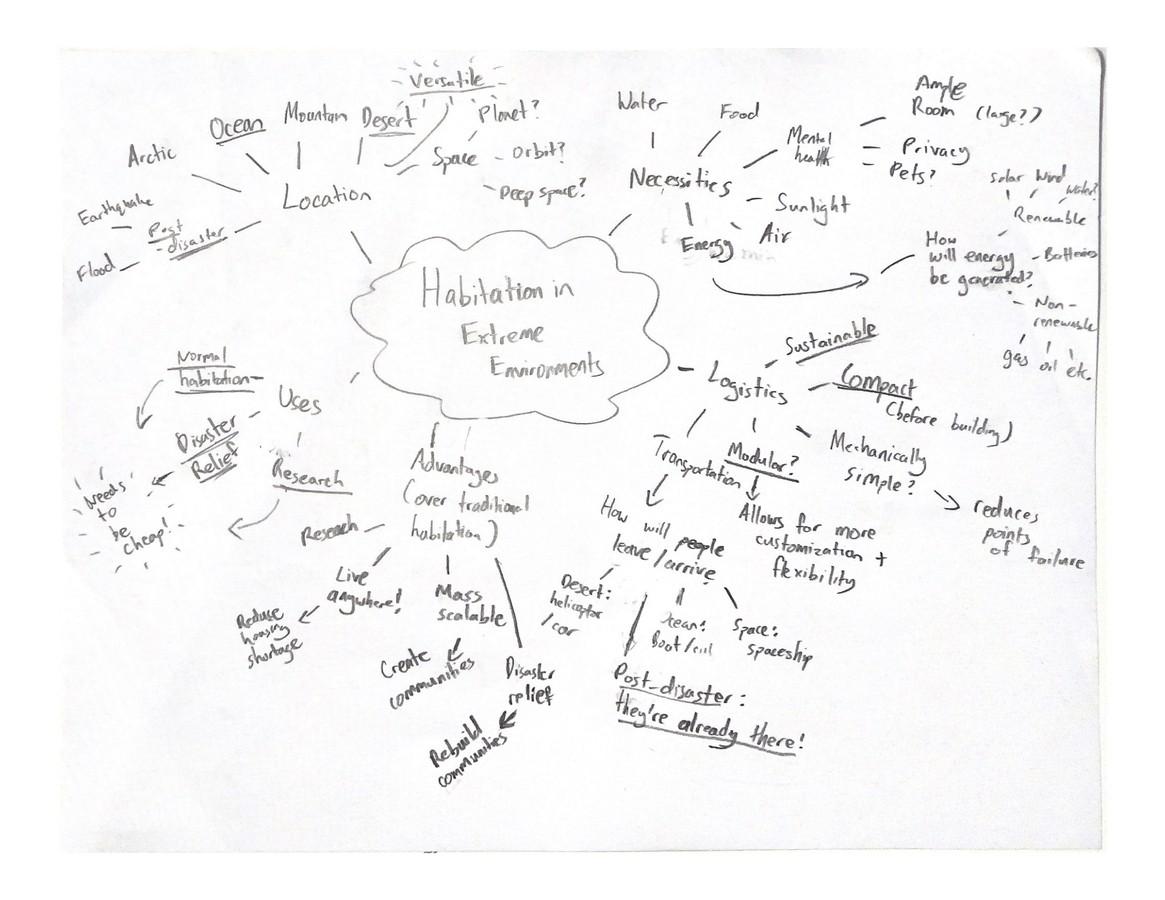 Habitation in
Extreme
Environments
Location
Ocean
Mountain
Desert
Versatile
Space
Planet?
Orbit?
Deep space?
Arctic
Post
-disaster
Earthquake
Flood
Necessities
Water
Food
Mental
health
Ample
Room (large?)
Privacy
Pets?
Sunlight
Air
Energy
How
will energy
be generated?
Renewable
Solar
Wind
Water?
Batteries
Non-
renewable
gas
oil
etc.
Logistics
Sustainable
Compact
(before building)
Mechanically
simple?
reduces
points
of failure
Modular?
Allows for more
customization +
flexibility
Transportation
How will people
leave/arrive
Desert:
helicoptor
/car
Boat/
Space:
spaceship
Post-disaster:
they're already there!
Advantages
(over traditional
habitation)
Reseach
Live
anywhere!
Reduse
housing
shortage
Mass
scalable
Create
communities
Disaster
relief
Rebuild
communities
Uses
Normal
habitation
Disaster
Relief
Research
Needs
to
be
cheap!